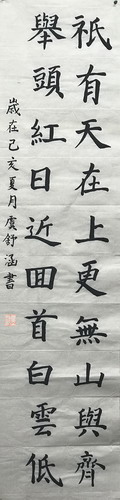 祇有天在上更無山與齊
舉頭紅日近囬首白雲低
歲在己亥夏月虞舒涵書